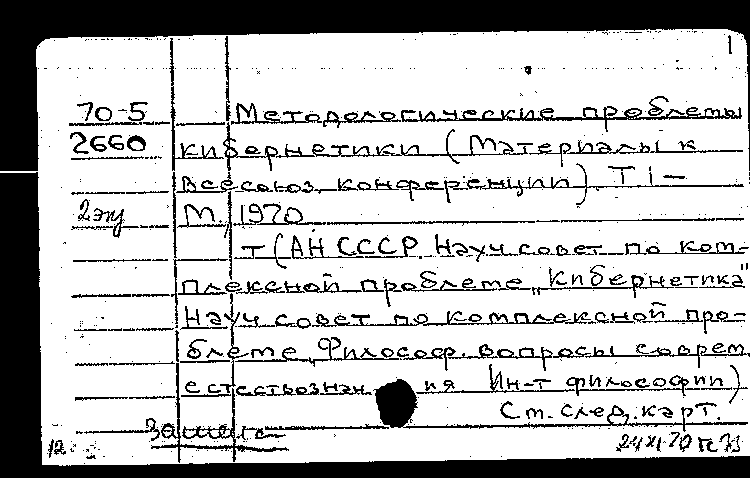 1
70-5 Методологические проблемы
2660 кибернетики (Материалы к
Всесоюз. конференции). Т 1 —
2 экз М, 1970
т (АН СССР Науч совет по ком-
плексной проблеме „Кибернетика"
Науч совет по комплексной про-
блеме „Философ. вопросы соврем.
естествознан ия Ин-т философии)
См. след. карт.
12
24 XI 70